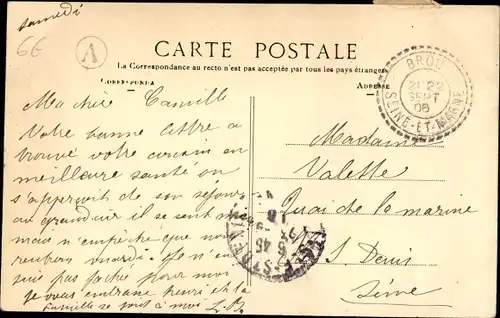 samedi
6E
A
CARTE POSTALE
La Correspondance au recto n'est pas acceptée par tous les pays étrangers
CORRESPONDA
ADRESSE
BROU
22
SEPT
08
SEINE-ET-MARNE
Ma chère Camille
Votre bonne lettre a
trouvé votre cousin en
meilleure santé on
s'aperçoit de son séjour
au grand air il se sent
mais n'empêche que nous
mardi
suis pas faché pour moi
je vous embrasse henri et la
famille se joint à moi L.B.
Madame
Valette
Quai de la marine
St Denis
Seine
5 45
ST DENIS